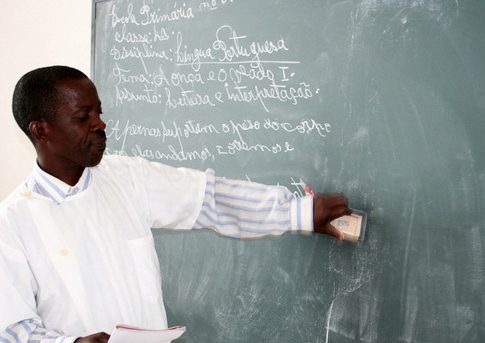 Escola Primária nº
classe:
Disciplina: Língua Portuguesa
Tema: A onça e o Veado I
Assunto: Leitura e interpretação.
As pernas suportem o peso do corpo
andamos, corremos e